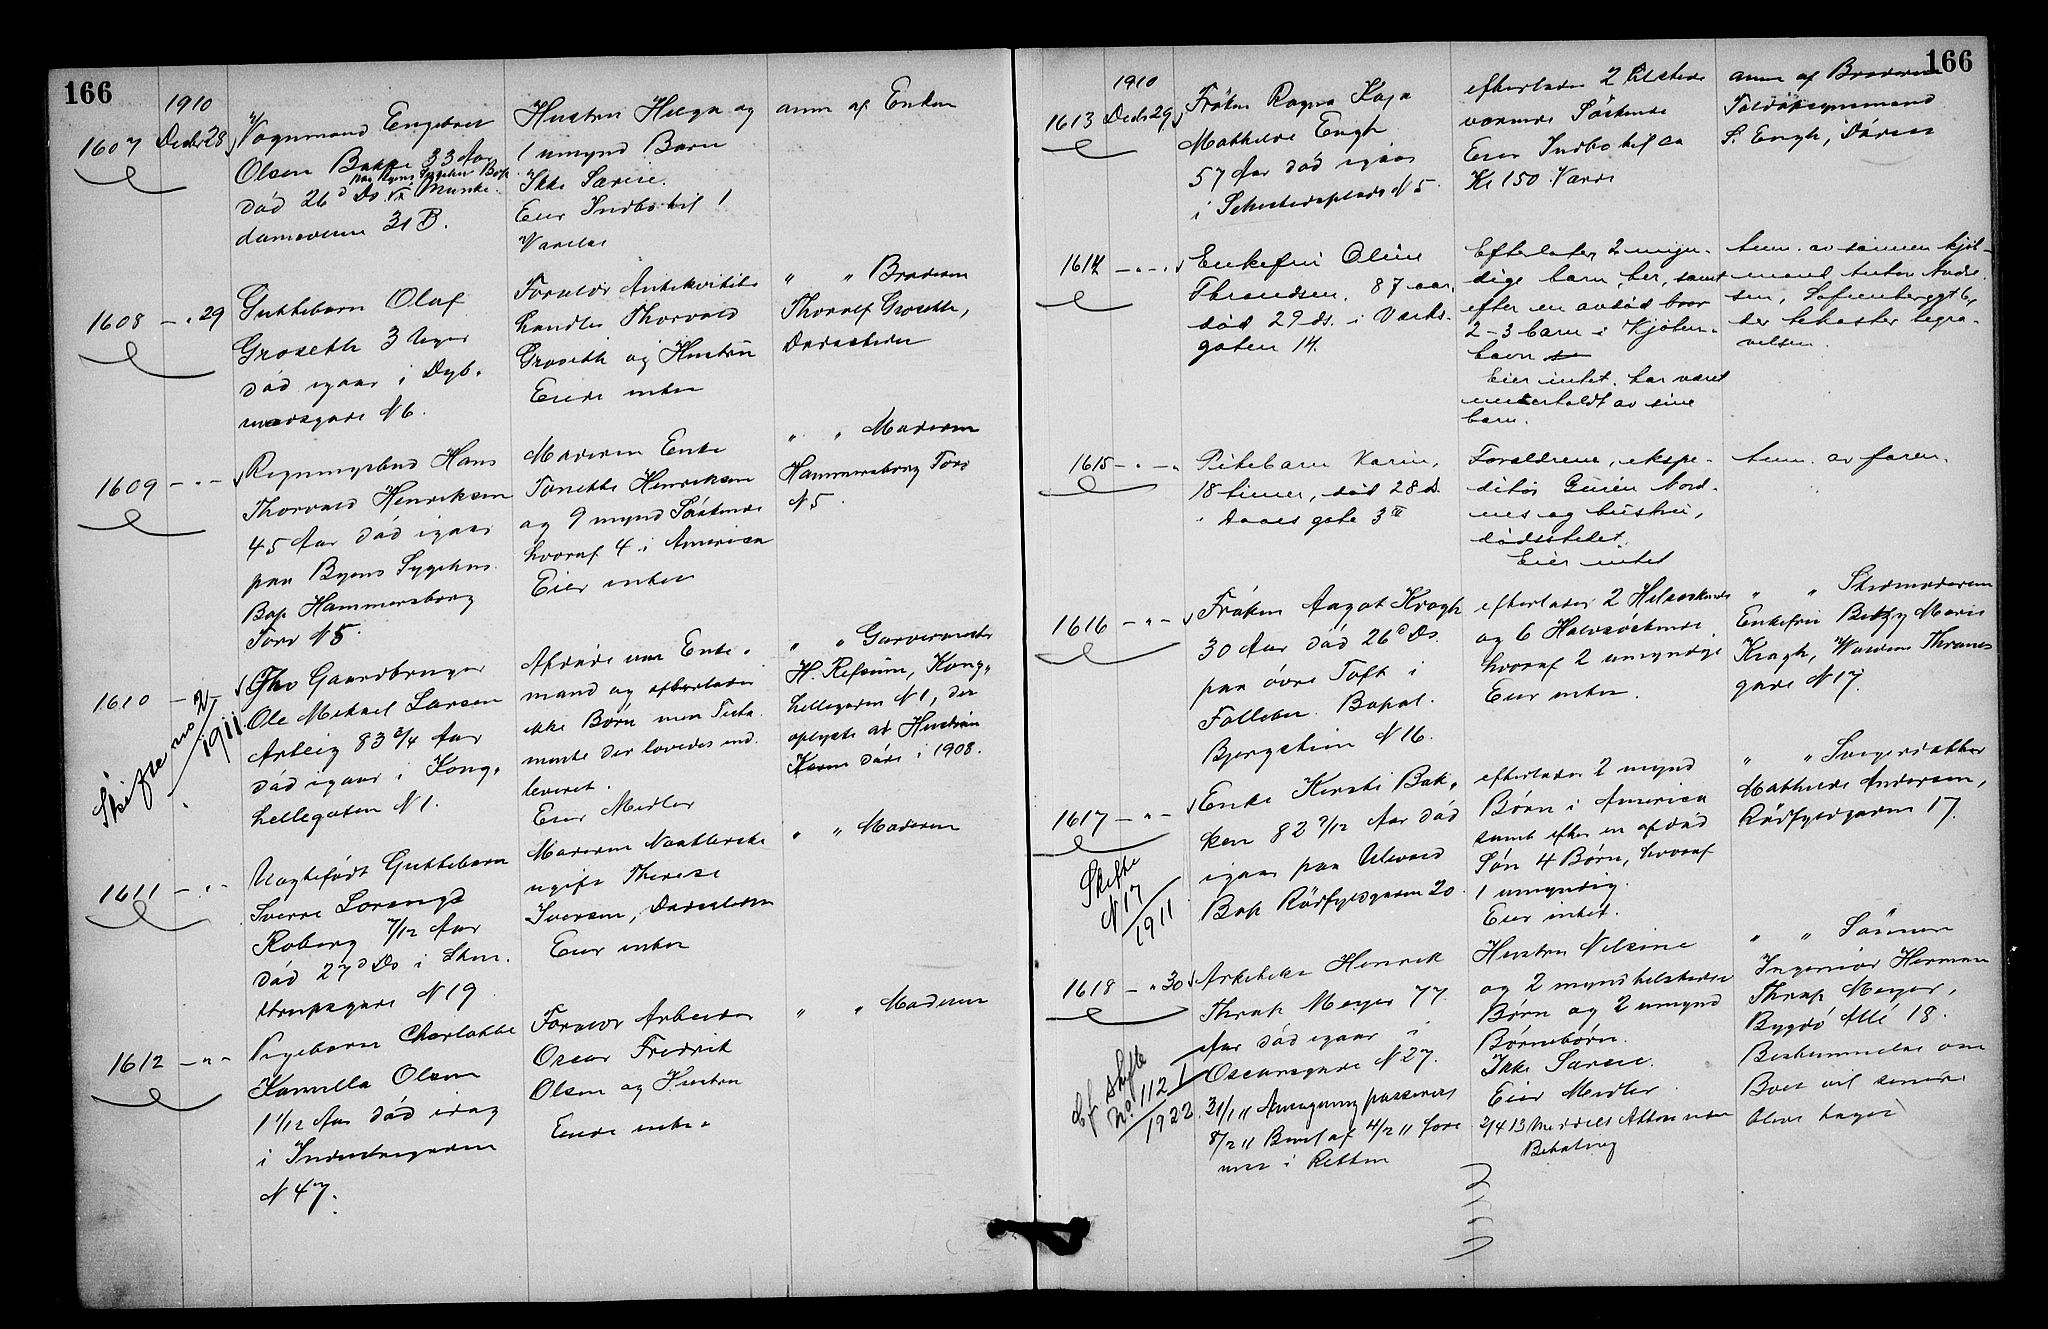 166
1910
1607 Decbr 28
Vognmand Engebret
Olsen Bakke 33 Aar
paa Byens Sygehus Bop
død 26d Ds Munke-
damsveien 31 B.
Hustru Helga og
1 umynd Barn
Ikke Særeie.
Eier Indbo til
Værelse
anm af Enken
1608 - " 29
Guttebarn Olaf
Groseth 3 Uger
død igaar i Dyb-
vadsgade N 6.
Forældr Antikvitets
handler Thorvald
Groseth og Hustru
Eiede intet
" " Broderen
Thoralf Groseth,
Dødsstedet
1609 - " -
Regningsbud Hans
Thorvald Henriksen
45 Aar død igaar
paa Byens Sygehus
Bop Hammersborg
Torv N 5.
Moderen Enke
Tonette Henriksen
og 9 mynd Søskende
hvoraf 4 i America
Eier intet
" " Moderen
Hammersborg Torv
N 5.
1610 -
Skifte no 2/1911
Fhv Gaardbruger
Ole Mikael Larsen
Arteig 83 3/4 Aar
død igaar i Kong-
hellegaten N 1.
Afdøde var Enke-
mand og efterlader
ikke Børn men Testa-
mente der lovedes ind-
leveret.
Eier Midler
" " Garvermester
H. Refsum, Kong-
hellegaden N 1, der
oplyste at Hustruen
Karen døde i 1908.
1611 - " -
Uægtefødt Guttebarn
Sverre Lorang
Roberg 7/12 Aar
død 27d Ds i Sten-
strupsgade N 19
Moderen
ugift Therese
Iversen, Dødsstedet
Eier intet
" " Moderen
1612 - " -
Pigebarn Charlotte
Kamilla Olsen
1 1/12 Aar død idag
i Industrigaden
N 47.
Forældr Arbeider
Oscar Fredrik
Olsen og Hustru
Eiede intet.
" " Moderen
166
1910
1613 Decbr 29
Frøken Ragna Kaja
Mathilde Engh
57 Aar død igaar
i Schestedsplads N 5.
efterlader 2 tilstede
værende Søskende
Eier Indbo til ca
Kr 150 Værdi
anm af Broderen
Toldopsynsmand
S. Engh, Dørin
1614 - " -
Enkefru Oline
Thrandsen, 87 aar,
død 29 ds. i Verks-
gaten 14.
Efterlater 2 myn-
dige barn, her, samt
efter en avdød bror
2-3 barn i Kjøben-
havn
Eier intet. har været
underholdt av sine
barn.
Anm. av sønnen kjøb-
mand Anton Andr-
sen, Sofienberggt 6,
der bekoster begra-
velsen.
1615 - " -
Pikebarn Karin,
18 timer, død 28 ds.
i Daaes gate 3 III
Forældrene, ekspe-
ditør Nord-
nes og hustru,
dødsstedet.
Eier intet
Anm. av faren.
1616 - " -
Frøken Aagot Kragh
30 Aar død 26d Ds.
paa øvre Toft i
Follebu. Bopæl.
Bjergstien N 16.
efterlader 2 Helsøskende
og 6 Halvsøskende
hvoraf 2 umyndige
Eier intet.
" " Stedmoderen
Enkefru Betzy Marie
Kragh, Waldem Thranes
gade N 17.
1617 - " -
Skifte
N 17/1911
Enke Kersti Bak-
ken 82 7/12 Aar død
igaar paa Ulevold
Bop Rødfyldgaden 20
efterlader 2 mynd
Børn i America
samt efter en afdød
Søn 4 Børn, hvoraf
1 umyndig.
Eier intet.
" " Svigerdatter
Mathilde Andersen,
Rødfyldgaden 17.
1618 - " 30
Cf. Skifte
No 112 I/1922
Arkitekt Henrik
Thrap Meyer 77
Aar død igaar i
Oscarsgade N 27.
31/1 11
8/2 11 Brev af 4/2 11
i Retten
Hustru Nilsine
og 2 mynd helstedes
Børn og 2 umynd
Børnebørn.
Ikke Særeie.
Eier Midler.
2/4 13 Meddelt Attest uden
Betaling
" " Sønnen
Ingeniør Herman
Thrap Meyer,
Bygdø Allé 18.
Bestemmelse om
Boet vil senere
blive taget